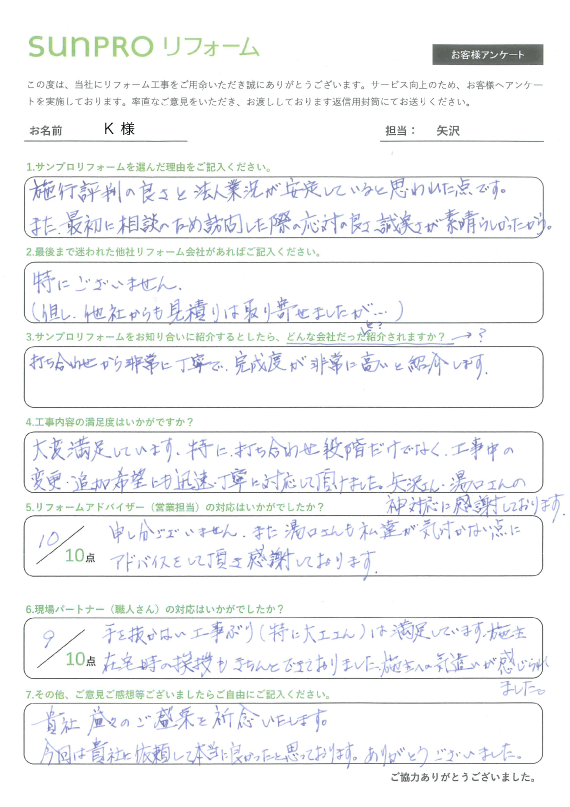 sunPRO リフォーム
お客様アンケート
この度は、当社にリフォーム工事をご用命いただき誠にありがとうございます。サービス向上のため、お客様へアンケー
トを実施しております。率直なご意見をいただき、お渡ししております返信用封筒にてお送りください。
お名前 K 様 担当： 矢沢
1.サンプロリフォームを選んだ理由をご記入ください。
施行評判の良さと法人業況が安定していると思われた点です。
また、最初に相談のため訪問した際の応対の良さ、誠実さが素晴らしかったから。
2.最後まで迷われた他社リフォーム会社があればご記入ください。
特にございません。
(但し、他社からも見積りは取り寄せましたが…)
3.サンプロリフォームをお知り合いに紹介するとしたら、どんな会社だった紹介されますか？ →？
と？
打ち合わせから非常に丁寧で、完成度が非常に高いと紹介します。
4.工事内容の満足度はいかがですか？
大変満足しています。特に、打ち合わせ段階だけでなく、工事中の
変更・追加希望にも迅速・丁寧に対応して頂けました。矢沢さん・湯口さんの
神対応に感謝しております。
5.リフォームアドバイザー（営業担当）の対応はいかがでしたか？
10／10点 申し分ございません。また湯口さんも私達が気付かない点に
アドバイスをして頂き感謝しております。
6.現場パートナー（職人さん）の対応はいかがでしたか？
9／10点 手を抜かない工事ぶり(特に大工さん)は満足しています。施主
在宅時の挨拶もきちんとできておりました。施主への気遣いが感じられ
ました。
7.その他、ご意見ご感想等ございましたらご自由にご記入ください。
貴社益々のご盛栄を祈念いたします。
今回は貴社に依頼して本当に良かったと思っております。ありがとうございました。
ご協力ありがとうございました。